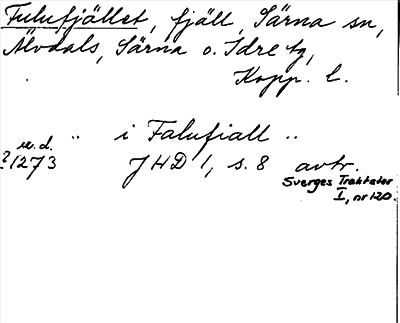 Fulufjället, fjäll, Särna sn,
Älvdals, Särna o. Idre tg,
Kopp. l.
" i Falufiall "
u.d.
?1273 JHD 1, s. 8 avtr.
Sverges Traktater
I, nr 120.